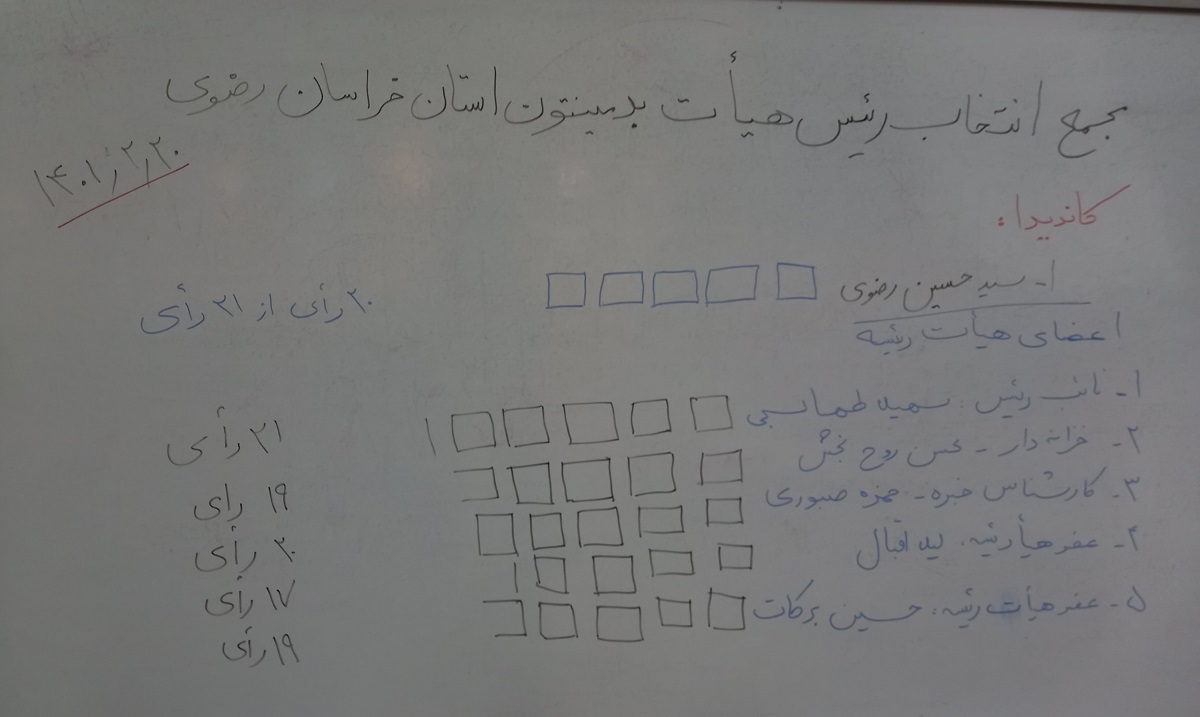 مجمع انتخاب رئیس هیأت بدمینتون استان خراسان رضوی
۱۴۰۱٫۲٫۲۰
کاندیدا:
۱- سید حسین رضوی
۲۰ رأی از ۲۱ رأی
اعضای هیأت رئیسه
۱- نائب رئیس: طهماسبی ۲۱ رأی
۲- خزانه دار - روح بخش ۱۹ رای
۳- کارشناس خبره - حمزه صبوری ۲۰ رأی
۴- عضو هیأت رئیسه: اقبال ۱۷ رأی
۵- عضو هیأت رئیسه: حسین برکات ۱۹ رأی